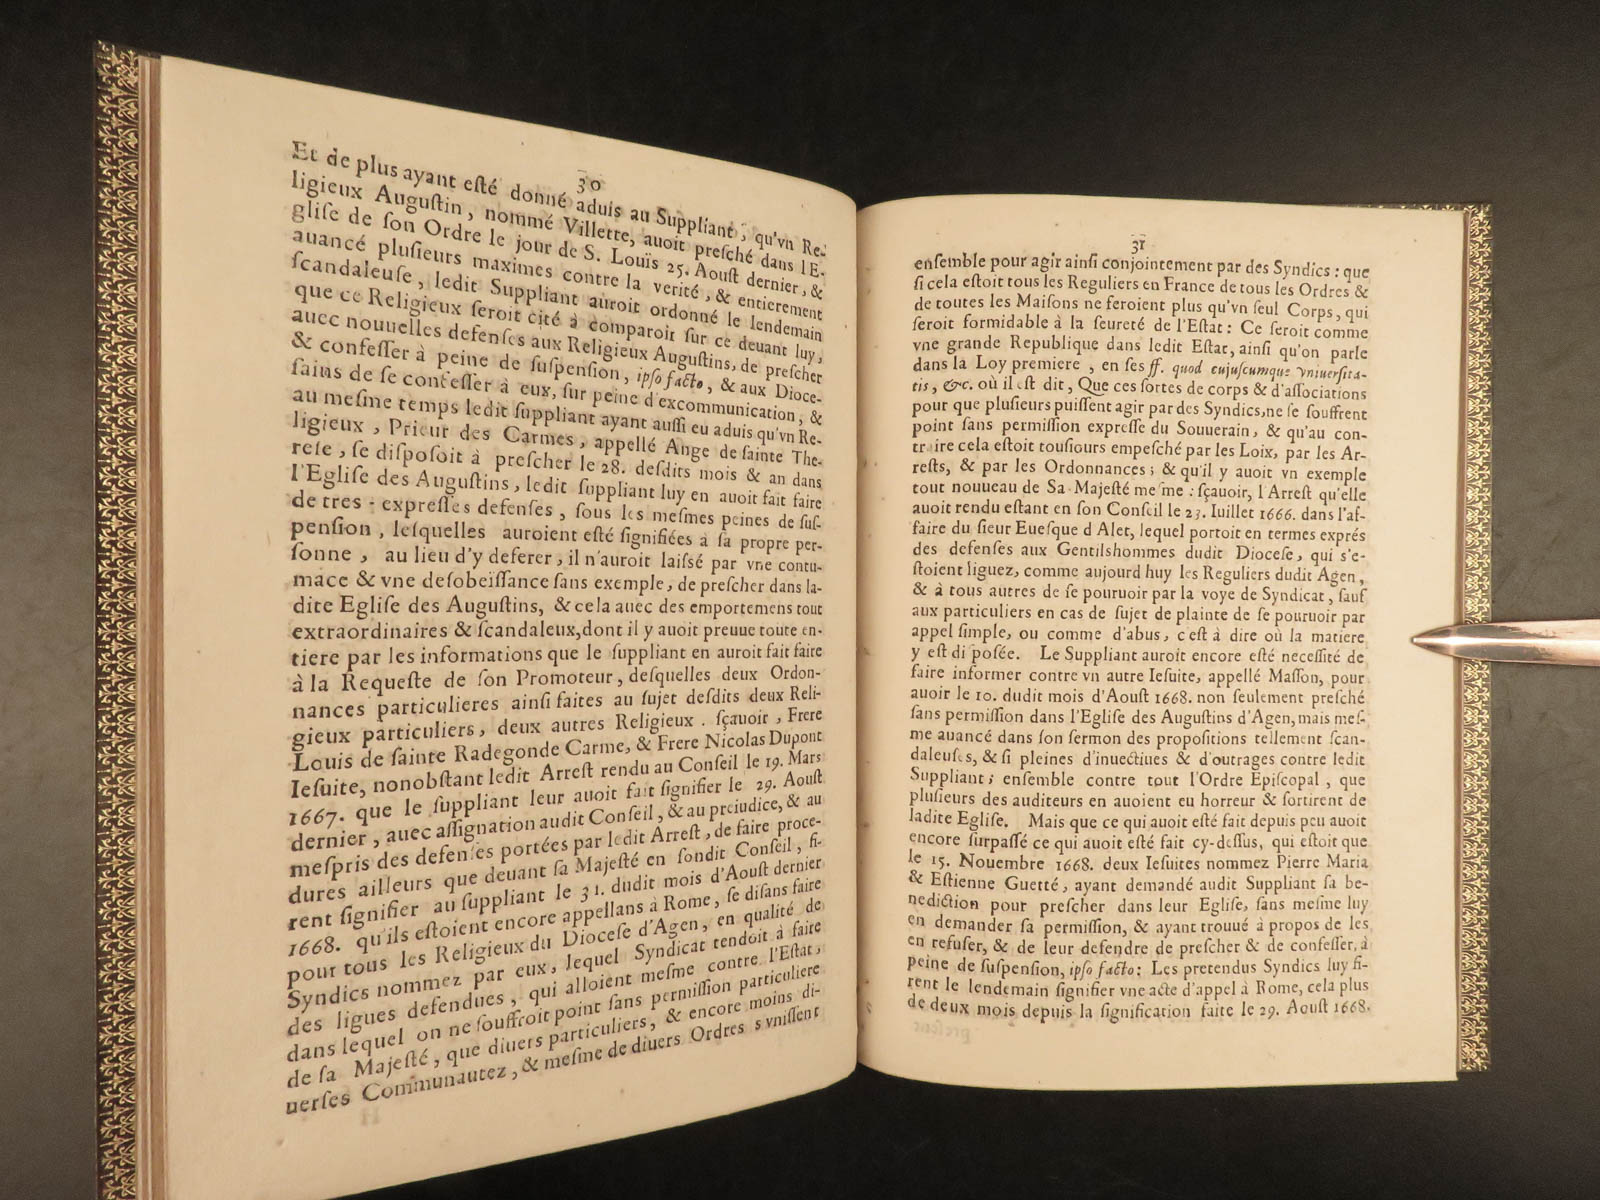 30
Et de plus ayant eſté donné aduis au Suppliant, qu'vn Re-
ligieux Auguſtin, nommé Villette, auoit preſché dans l'E-
gliſe de ſon Ordre le jour de S. Louïs 25. Aouſt dernier, &
auancé pluſieurs maximes contre la verité, & entierement
ſcandaleuſe, ledit Suppliant auroit ordonné le lendemain
que ce Religieux ſeroit cité à comparoir ſur ce deuant luy,
auec nouuelles defenſes aux Religieux Auguſtins, de preſcher
& confeſſer à peine de ſuſpenſion, ipſo facto, & aux Dioce-
ſains de ſe confeſſer à eux, ſur peine d'excommunication, &
au meſme temps ledit ſuppliant ayant auſſi eu aduis qu'vn Re-
ligieux, Prieur des Carmes, appellé Ange de ſainte The-
reſe, ſe diſpoſoit à preſcher le 28. deſdits mois & an dans
l'Egliſe des Auguſtins, ledit ſuppliant luy en auoit fait faire
de tres-expreſſes defenſes, ſous les meſmes peines de ſuſ-
penſion, leſquelles auroient eſté ſignifiées à ſa propre per-
ſonne, au lieu d'y deferer, il n'auroit laiſſé par vne contu-
mace & vne deſobeiſſance ſans exemple, de preſcher dans la-
dite Egliſe des Auguſtins, & cela auec des emportemens tout
extraordinaires & ſcandaleux, dont il y auoit preuue toute en-
tiere par les informations que le ſuppliant en auroit fait faire
à la Requeſte de ſon Promoteur, deſquelles deux Ordon-
nances particulieres ainſi faites au ſujet deſdits deux Reli-
gieux particuliers, deux autres Religieux. ſçauoir, Frere
Louis de ſainte Radegonde Carme, & Frere Nicolas Dupont
Ieſuite, nonobſtant ledit Arreſt rendu au Conſeil le 19. Mars
1667. que le ſuppliant leur auoit fait ſignifier le 29. Aouſt
dernier, auec aſſignation audit Conſeil, & au prejudice, & au
meſpris des defenſes portées par ledit Arreſt, de faire proce-
dures ailleurs que deuant ſa Majeſté en ſondit Conſeil, fi-
rent ſignifier au ſuppliant le 31. dudit mois d'Aouſt dernier
1668. qu'ils eſtoient encore appellans à Rome, ſe diſans faire
pour tous les Religieux du Dioceſe d'Agen, en qualité de
Syndics nommez par eux, lequel Syndicat tendoit à faire
des ligues defendues, qui alloient meſme contre l'Eſtat,
dans lequel on ne ſouffroit point ſans permiſſion particuliere
de ſa Majeſté, que diuers particuliers, & encore moins di-
uerſes Communautez, & meſme de diuers Ordres s'vniſſent
31
enſemble pour agir ainſi conjointement par des Syndics : que
ſi cela eſtoit tous les Reguliers en France de tous les Ordres &
de toutes les Maiſons ne feroient plus qu'vn ſeul Corps, qui
ſeroit formidable à la ſeureté de l'Eſtat : Ce ſeroit comme
vne grande Republique dans ledit Eſtat, ainſi qu'on parle
dans la Loy premiere, en ſes ff. quod cujuſcumque vniuerſita-
tis, &c. où il eſt dit, Que ces ſortes de corps & d'aſſociations
pour que pluſieurs puiſſent agir par des Syndics, ne ſe ſouffrent
point ſans permiſſion expreſſe du Souuerain, & qu'au con-
traire cela eſtoit touſiours empeſché par les Loix, par les Ar-
reſts, & par les Ordonnances ; & qu'il y auoit vn exemple
tout nouueau de Sa Majeſté meſme : ſçauoir, l'Arreſt qu'elle
auoit rendu eſtant en ſon Conſeil le 23. Iuillet 1666. dans l'af-
faire du ſieur Eueſque d'Alet, lequel portoit en termes exprés
des defenſes aux Gentilshommes dudit Dioceſe, qui s'e-
ſtoient liguez, comme aujourd'huy les Reguliers dudit Agen,
& à tous autres de ſe pouruoir par la voye de Syndicat, ſauf
aux particuliers en cas de ſujet de plainte de ſe pouruoir par
appel ſimple, ou comme d'abus, c'eſt à dire où la matiere
y eſt diſpoſée. Le Suppliant auroit encore eſté neceſſité de
faire informer contre vn autre Ieſuite, appellé Maſſon, pour
auoir le 10. dudit mois d'Aouſt 1668. non ſeulement preſché
ſans permiſſion dans l'Egliſe des Auguſtins d'Agen, mais meſ-
me auancé dans ſon ſermon des propoſitions tellement ſcan-
daleuſes, & ſi pleines d'inuectiues & d'outrages contre ledit
Suppliant ; enſemble contre tout l'Ordre Epiſcopal, que
pluſieurs des auditeurs en auoient eu horreur & ſortirent de
ladite Egliſe. Mais que ce qui auoit eſté fait depuis peu auoit
encore ſurpaſſé ce qui auoit eſté fait cy-deſſus, qui eſtoit que
le 15. Nouembre 1668. deux Ieſuites nommez Pierre Maria
& Eſtienne Guetté, ayant demandé audit Suppliant ſa be-
nediction pour preſcher dans leur Egliſe, ſans meſme luy
en demander ſa permiſſion, & ayant trouué à propos de les
en refuſer, & de leur defendre de preſcher & de confeſſer, à
peine de ſuſpenſion, ipſo facto : Les pretendus Syndics luy fi-
rent le lendemain ſignifier vne acte d'appel à Rome, cela plus
de deux mois depuis la ſignification faite le 29. Aouſt 1668.